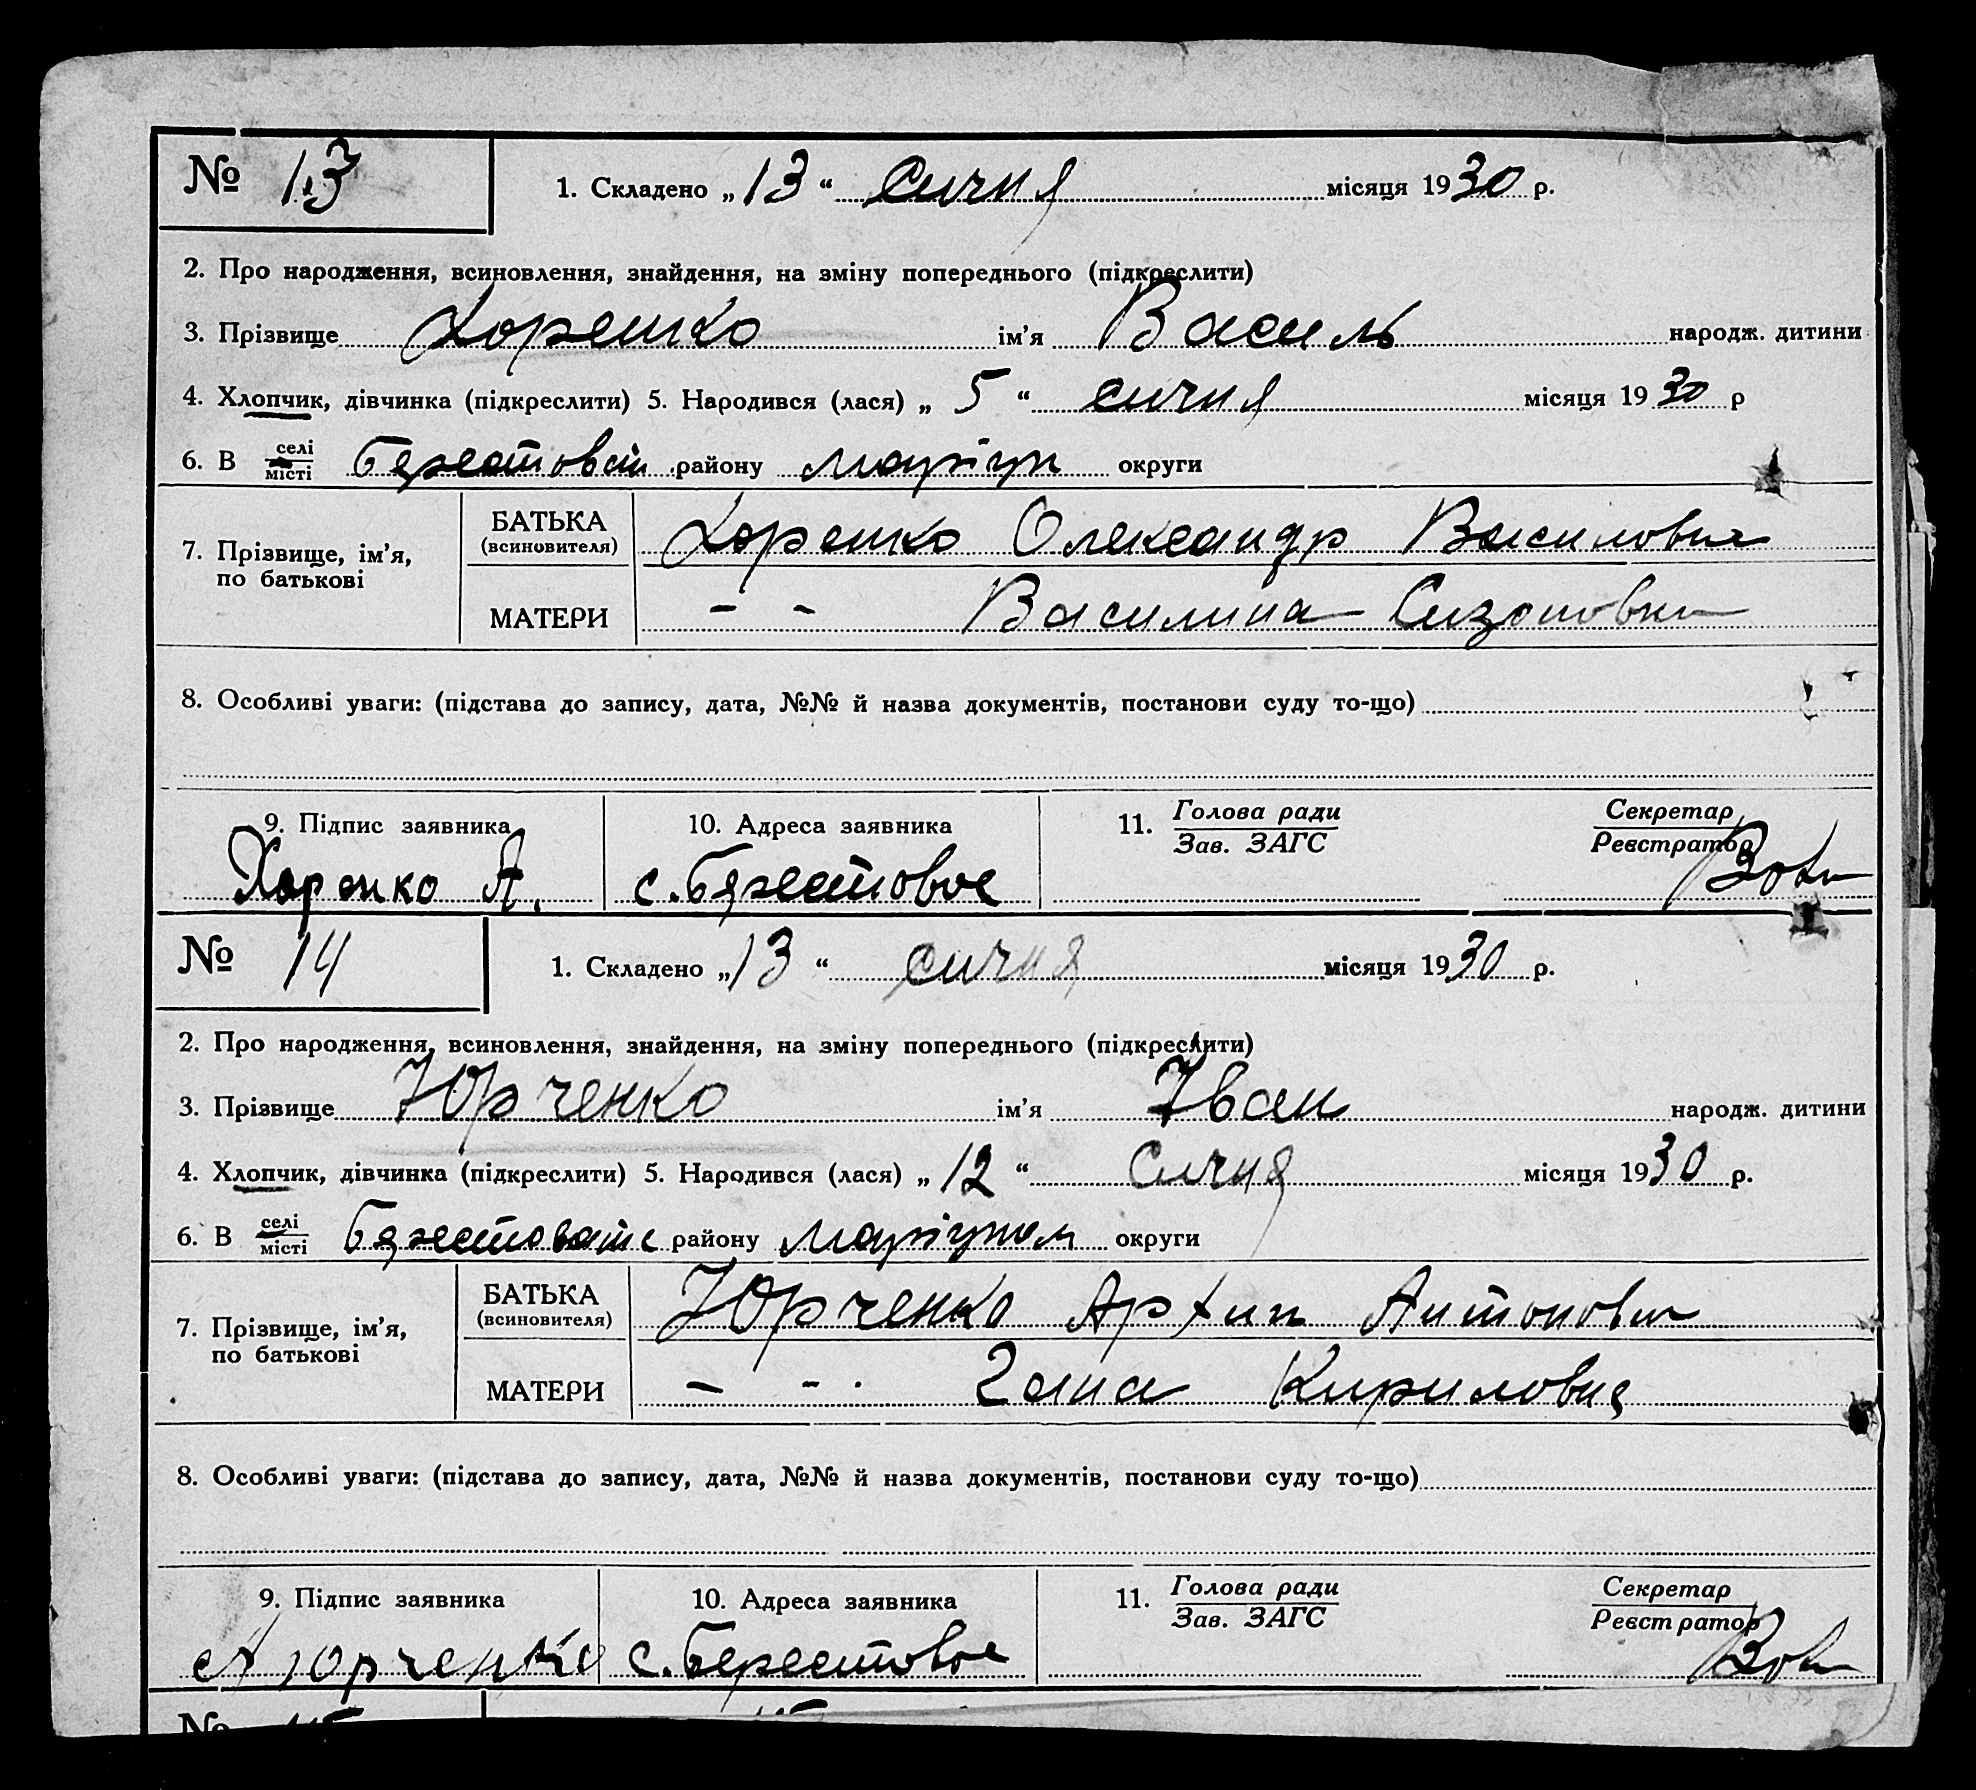 № 13 1. Складено „13“ січня місяця 1930 р.
2. Про народження, всиновлення, знайдення, на зміну попереднього (підкреслити)
3. Прізвище Хоренко ім’я Василь народж. дитини
4. Хлопчик, дівчинка (підкреслити) 5. Народився (лася) „ 5 “ січня місяця 1930 р
6. В селі
місті району округи
7. Прізвище, ім’я,
по батькові
БАТЬКА
(всиновителя)
Хоренко Олександр
МАТЕРИ
- - Василина
8. Особливі уваги: (підстава до запису, дата, №№ й назва документів, постанови суду то-що)
9. Підпис заявника 10. Адреса заявника 11. Голова ради
Зав. ЗАГС
Секретар
Реєстратор
А. с. Берестовое
№ 14 1. Складено „13“ січня місяця 1930 р.
2. Про народження, всиновлення, знайдення, на зміну попереднього (підкреслити)
3. Прізвище Юрченко ім’я Іван народж. дитини
4. Хлопчик, дівчинка (підкреслити) 5. Народився (лася) „ 12 “ Січня місяця 1930 р.
6. В селі
місті району округи
7. Прізвище, ім’я,
по батькові
БАТЬКА
(всиновителя)
Юрченко Архип Антонович
МАТЕРИ
- - Ганна Кириловна
8. Особливі уваги: (підстава до запису, дата, №№ й назва документів, постанови суду то-що)
9. Підпис заявника 10. Адреса заявника 11. Голова ради
Зав. ЗАГС
Секретар
Реєстратор
А Юрченко с. Берестовое
№